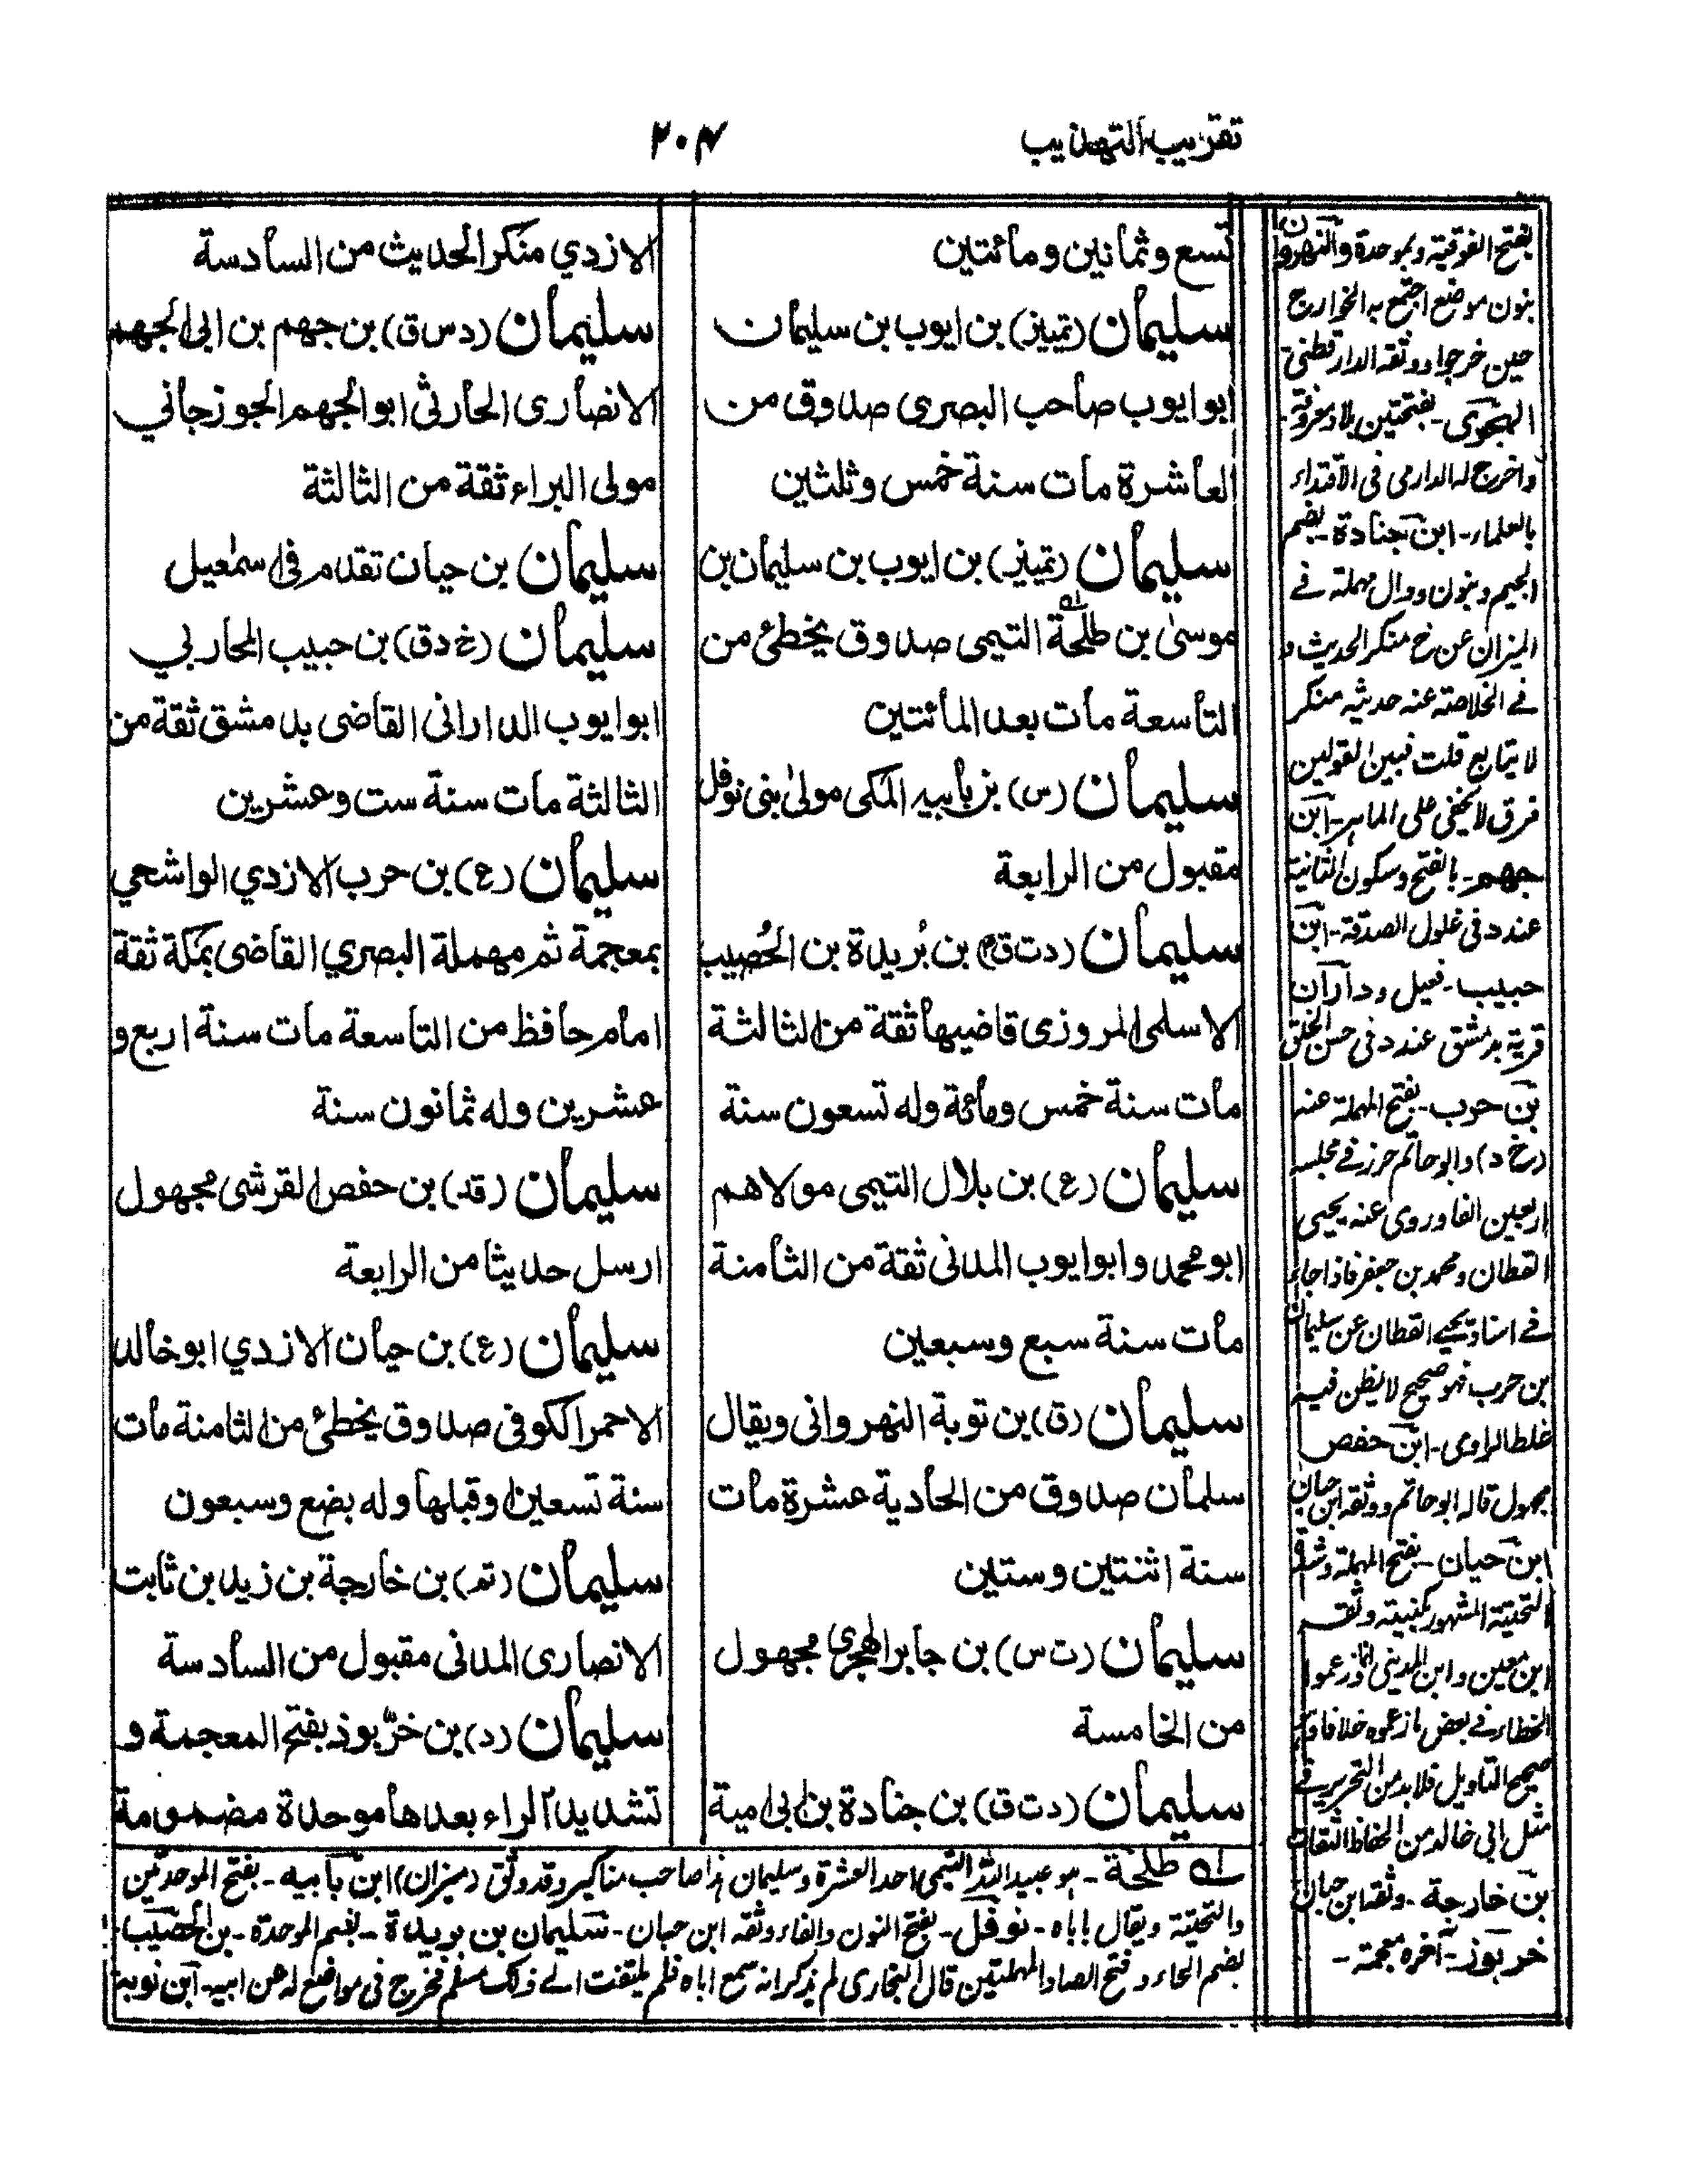 تقريب التهذيب
٢٠٤
تسع وثمانين ومائتين
سليمان (تمييز) بن ايوب بن سليمان
ابو ايوب صاحب البصرى صدوق من
العاشرة مات سنة خمس وثلثين
سليمان (تمييز) بن ايوب بن سليمان بن
موسىٰ بن طلحة التيمى صدوق يخطئ من
التاسعة مات بعد المائتين
سليمان (س) بن بابيه المكى مولىٰ بنى نوفل
مقبول من الرابعة
سليمان (دت ق) بن بُريدة بن الحُصيب
الاسلمى المروزى قاضيها ثقة من الثالثة
مات سنة خمس ومائة وله تسعون سنة
سليمان (ع) بن بلال التيمى مولاهم
ابو محمد وابو ايوب المدنى ثقة من الثامنة
مات سنة سبع وسبعين
سليمان (ق) بن توبة النهروانى ويقال
سلمان صدوق من الحادية عشرة مات
سنة اثنتين وستين
سليمان (ت س) بن جابر الهجرى مجهول
من الخامسة
سليمان (دت ق) بن جنادة بن ابى امية
الازدي منكر الحديث من السادسة
سليمان (دس ق) بن جهم بن ابى الجهم
الانصارى الحارثى ابو الجهم الجوزجاني
مولى البراء ثقة من الثالثة
سليمان بن حيان تقدم فى اسمٰعيل
سليمان (خ دق) بن حبيب المحاربي
ابو ايوب الدارانى القاضى بدمشق ثقة من
الثالثة مات سنة ست وعشرين
سليمان (ع) بن حرب الازدي الواشحي
بمعجمة ثم مهملة البصري القاضى بمكة ثقة
امام حافظ من التاسعة مات سنة اربع و
عشرين وله ثمانون سنة
سليمان (قد) بن حفص القرشى مجهول
ارسل حديثا من الرابعة
سليمان (ع) بن حيان الازدي ابو خالد
الاحمر الكوفى صدوق يخطئ من الثامنة مات
سنة تسعين او قبلها وله بضع وسبعون
سليمان (تم) بن خارجة بن زيد بن ثابت
الانصارى المدنى مقبول من السادسة
سليمان (د) بن خرّبوذ بفتح المعجمة و
تشديد الراء بعدها موحدة مضمومة
بفتح الفوقية وبموحدة والنهروان
بنون موضع اجتمع به الخوارج
حين خرجوا ووثقه الدارقطنى
الهجرى - بفتحتين بلاد معروفة
واخرج له الدارمى فى الاقتداء
بالعلماء - ابن جنادة - بضم
الجيم وبنون ودال مهملة فے
الميزان عن خ منكر الحديث و
فے الخلاصة عنه حديثه منكر
لا يتابع قلت فبين القولين
فرق لا يخفى على الماهر - ابن
جهم - بالفتح وسكون الثانية
عند د فى غلول الصدقة - ابن
حبيب - فعيل وداران
قرية بدمشق عند د فى حسن الخلق
بن حرب - بفتح المهملة عنه
(خ د) وابو حاتم حرز فے مجلسه
اربعين الفا وروى عنه يحيى
القطان ومحمد بن جعفر فاذا جاء
فے اسناد يحيے القطان عن سليمان
بن حرب فهو صحيح لا يظن فيه
غلط الراوى - ابن حفص
مجهول قاله ابو حاتم ووثقه ابن حبان
ابن حيان - بفتح المهملة وشدة
التحتية المشهور بكنيته وثقه
ابن معين وابن المدينى
الخطاء فے بعض ما زعموه خلافا
صحيح التاويل فلا بد من التحرير فے
مثل ابى خالد من الحفاظ الثقات
بن خارجة - وثقه ابن حبان
خربوذ - آخره معجمة -
سله طلحة - هو عبيد الله التيمى احد العشرة وسليمان هذا صاحب مناكير وقد وثق (ميزان) ابن بابيه - بفتح الموحدتين
والتحتية ويقال باباه - نوفل - بفتح النون والفاء وثقه ابن حبان - سليمان بن بريدة - بضم الموحدة - بن الحصيب -
بضم الحاء وفتح الصاد المهملتين قال البخارى لم يذكر انه سمع اباه فلم يلتفت الے ذلك مسلم فخرج فى مواضع له عن ابيه - ابن توبة